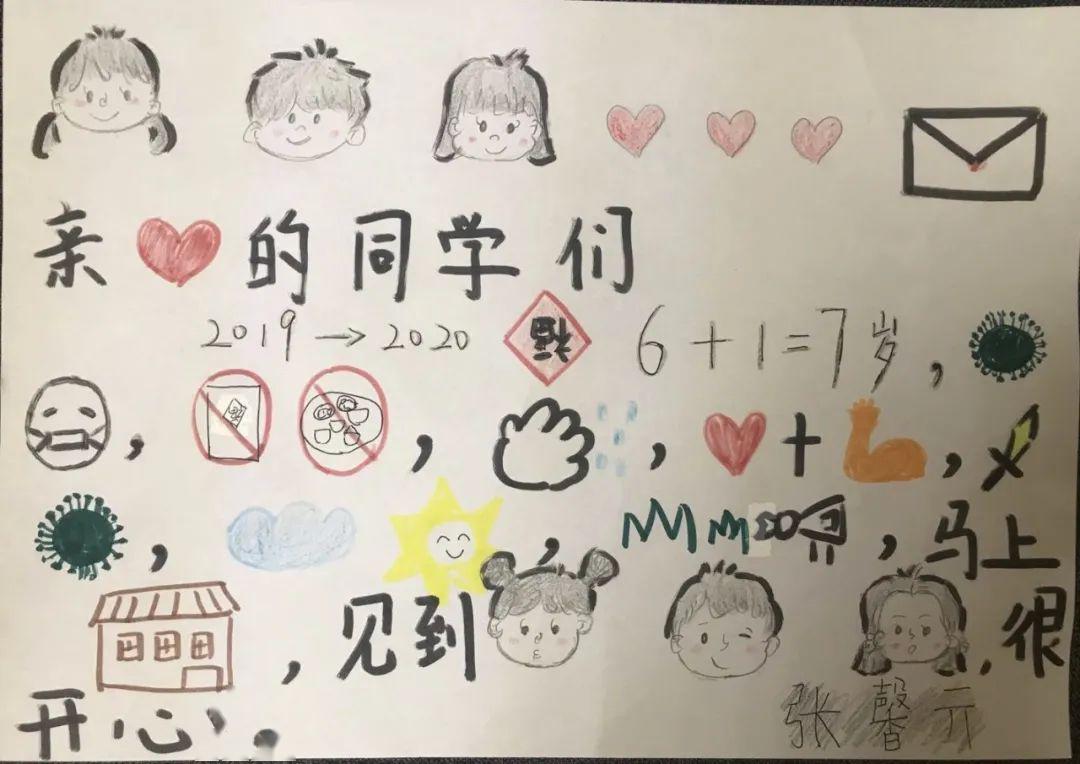 亲的同学们
2019→2020 福 6+1=7岁，
，福，，+，
，，，马上
，见到，很
开心。
张馨亓